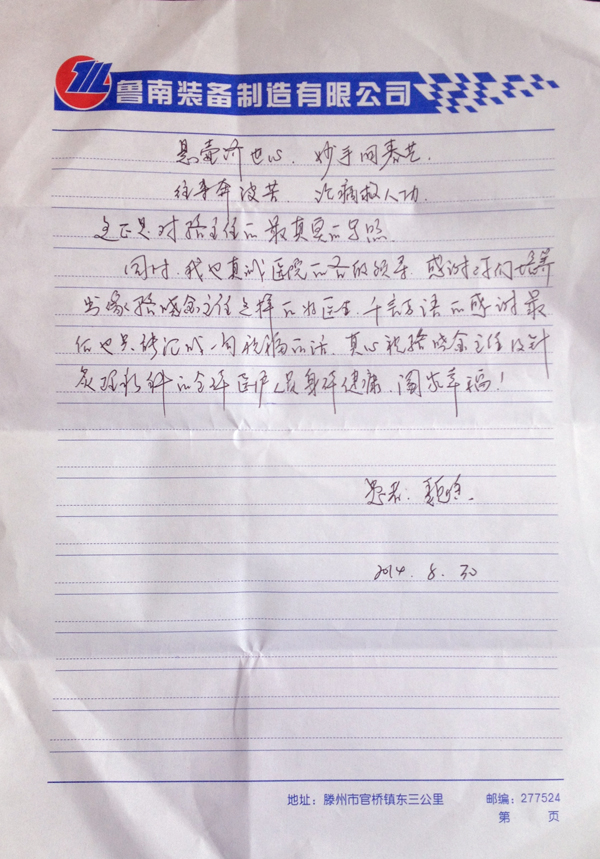 鲁南装备制造有限公司
悬壶济世心，妙手回春艺。
往事奔波苦，治病救人功。
这正是对骆主任的最真实的写照。
同时，我也真诚医院的各级领导，感谢你们培养
出象骆晓金主任这样的好医生，千言万语的感谢最
后也只能汇成一句祝福的话，真心祝骆晓金主任及针
灸理疗科的全体医护人员身体健康，阖家幸福！
患者：
2014. 8. 30
地址：滕州市官桥镇东三公里 邮编：277524
第 页